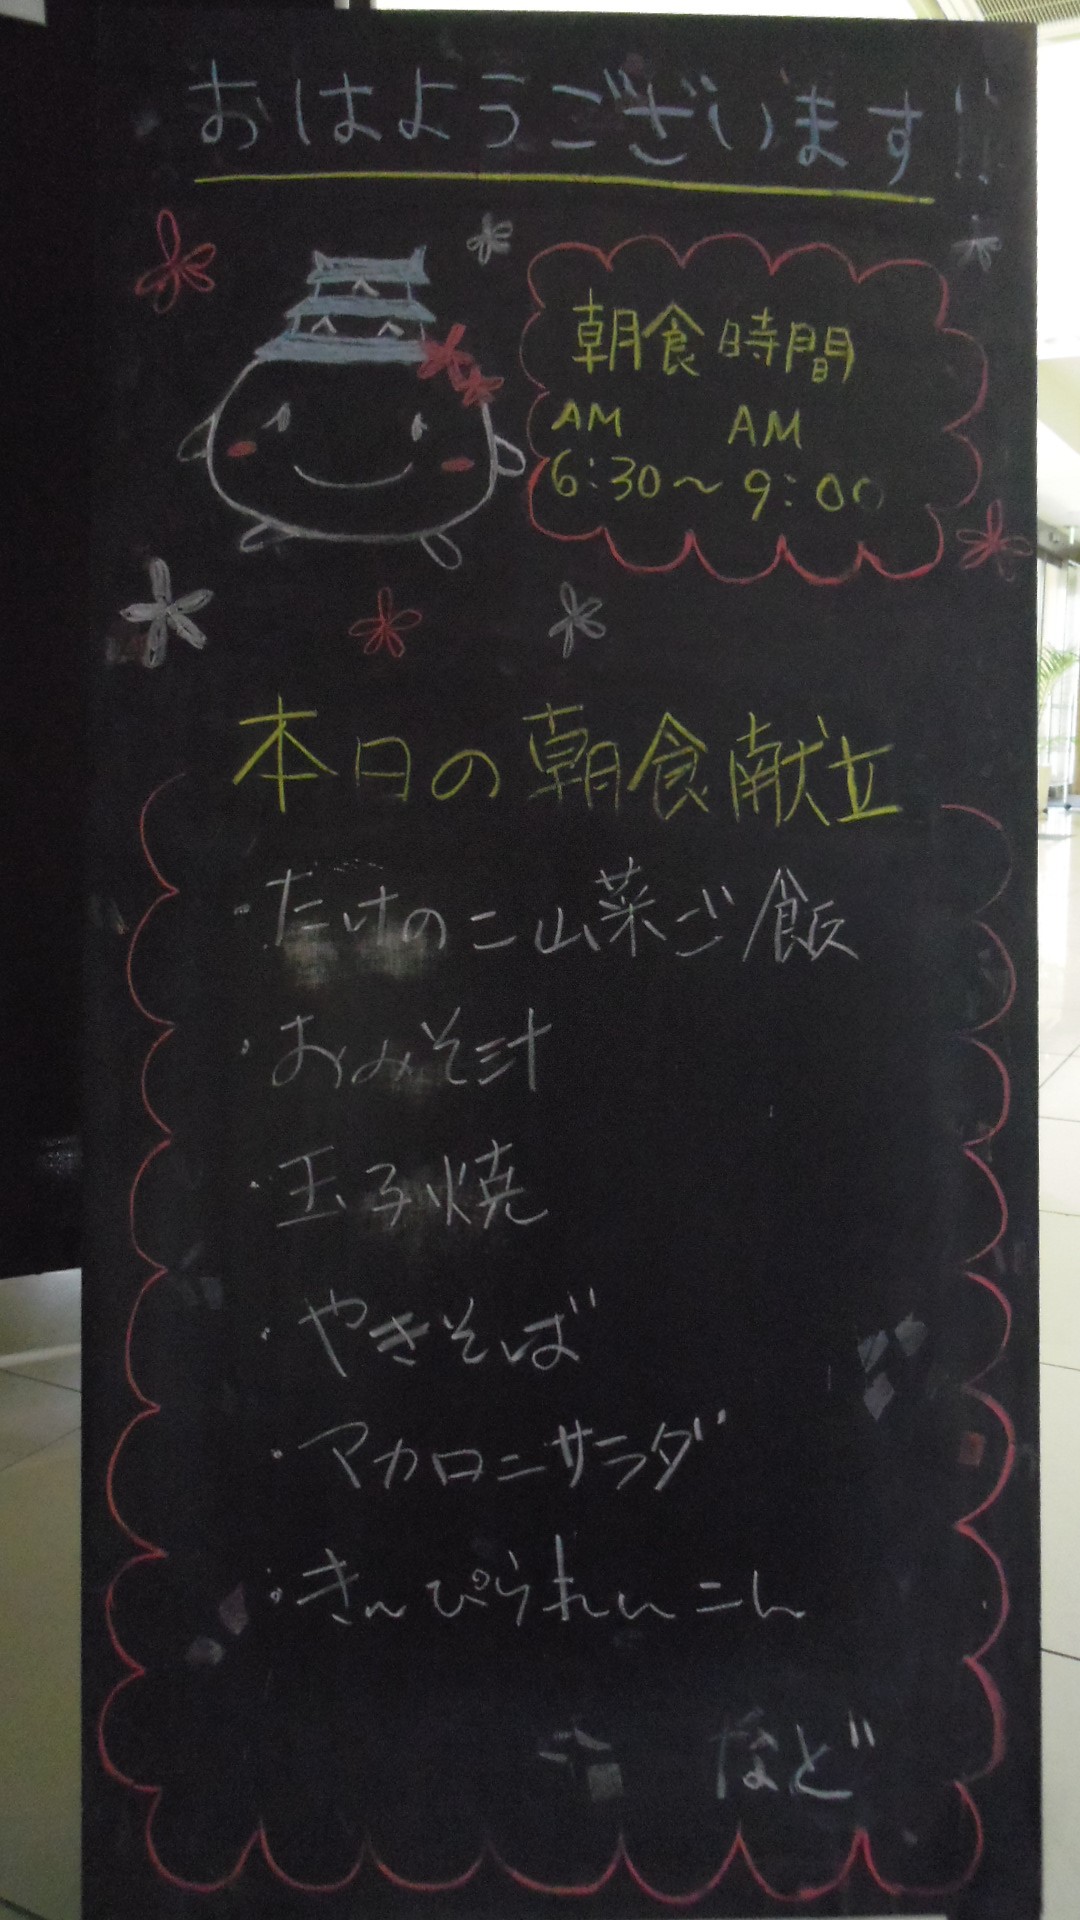 おはようございます!!
朝食時間
AM AM
6:30～9:00
本日の朝食献立
・たけのこ山菜ご飯
・おみそ汁
・玉子焼
・やきそば
・マカロニサラダ
・きんぴられんこん
など